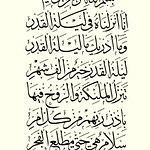 انا انزلناه في ليلة القدر
وما ادريك ما ليلة القدر
ليلة القدر خير من الف شهر
تنزل الملئكة والروح فيها
باذن ربهم من كل امر
سلام هي حتى مطلع الفجر